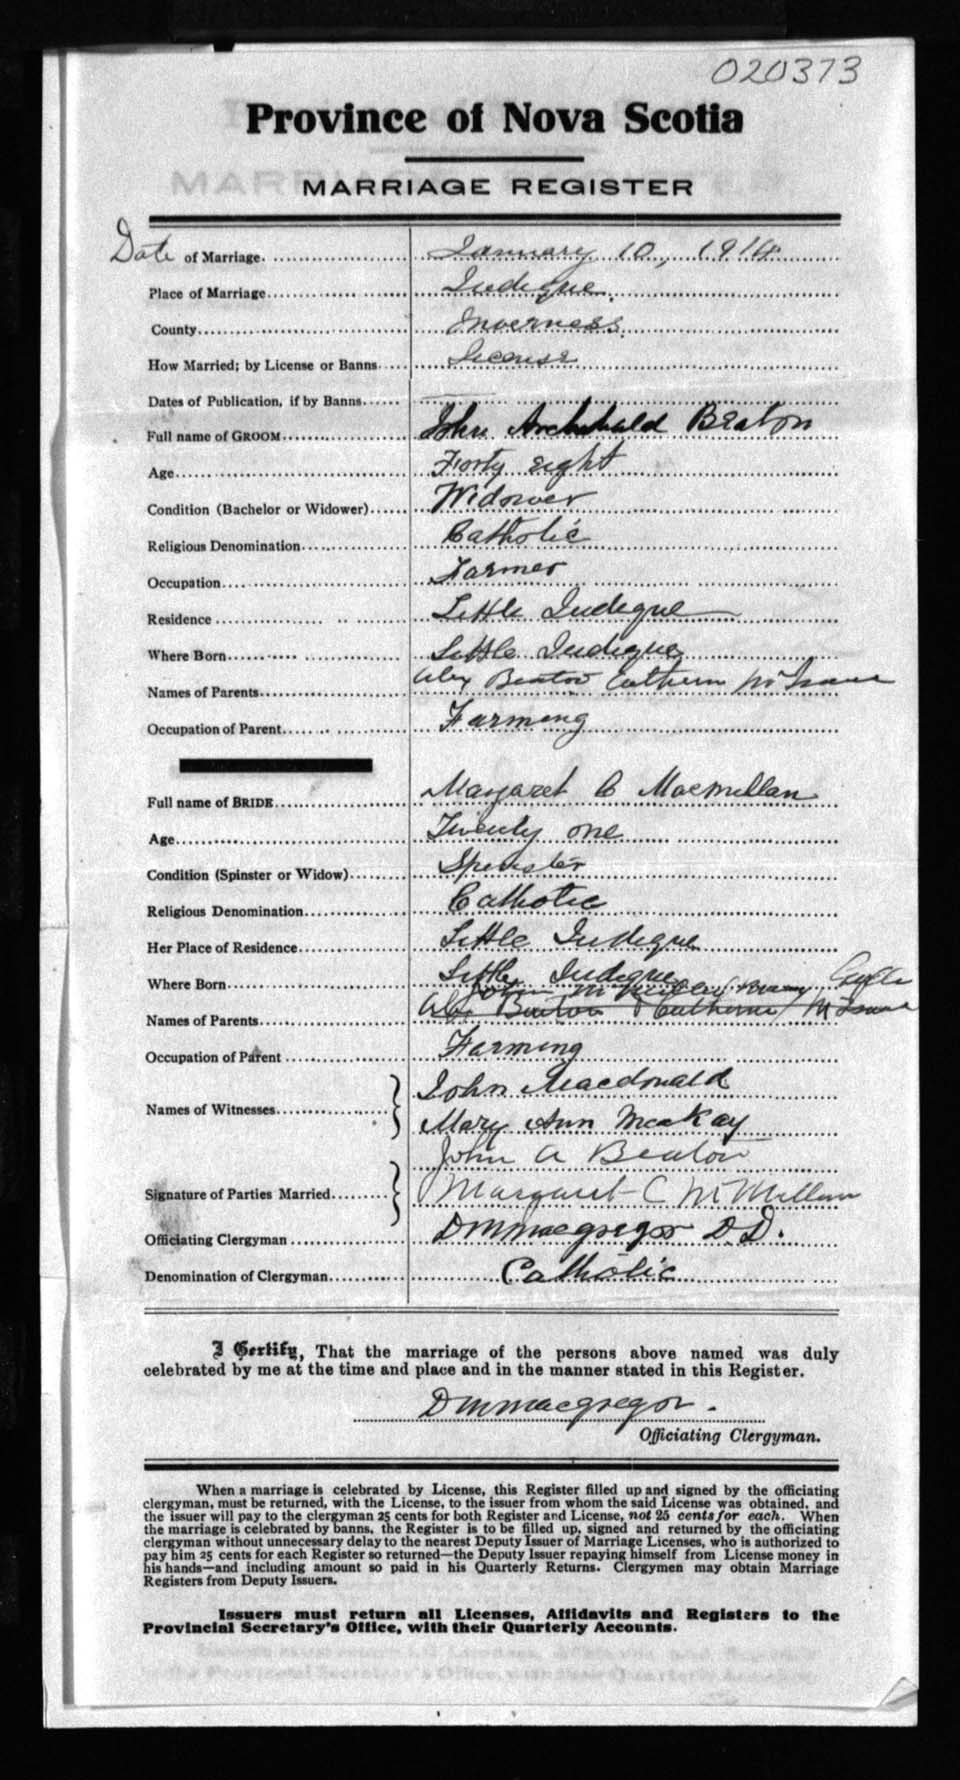 020373
Province of Nova Scotia
MARRIAGE REGISTER
Date of Marriage. January 10, 1914
Place of Marriage Judique
County Inverness
How Married; by License or Banns License
Dates of Publication, if by Banns
Full name of GROOM John Archibald Beaton
Age Forty eight
Condition (Bachelor or Widower) Widower
Religious Denomination Catholic
Occupation Farmer
Residence Little Judique
Where Born Little Judique
Names of Parents Alex Beaton Cathern McIsaac
Occupation of Parent Farming
Full name of BRIDE Margaret C Macmillan
Age Twenty one
Condition (Spinster or Widow) Spinster
Religious Denomination Catholic
Her Place of Residence Little Judique
Where Born Little Judique
John
Names of Parents Alex Beaton & Catherine McIsaac
Occupation of Parent Farming
Names of Witnesses John Macdonald
Mary Ann MacKay
John A Beaton
Signature of Parties Married Margaret C McMillan
Officiating Clergyman DMMacgregor D.D.
Denomination of Clergyman Catholic
I Certify, That the marriage of the persons above named was duly
celebrated by me at the time and place and in the manner stated in this Register.
DMMacgregor.
Officiating Clergyman.
When a marriage is celebrated by License, this Register filled up and signed by the officiating
clergyman, must be returned, with the License, to the issuer from whom the said License was obtained, and
the issuer will pay to the clergyman 25 cents for both Register and License, not 25 cents for each. When
the marriage is celebrated by banns, the Register is to be filled up, signed and returned by the officiating
clergyman without unnecessary delay to the nearest Deputy Issuer of Marriage Licenses, who is authorized to
pay him 25 cents for each Register so returned—the Deputy Issuer repaying himself from License money in
his hands—and including amount so paid in his Quarterly Returns. Clergymen may obtain Marriage
Registers from Deputy Issuers.
Issuers must return all Licenses, Affidavits and Registers to the
Provincial Secretary's Office, with their Quarterly Accounts.